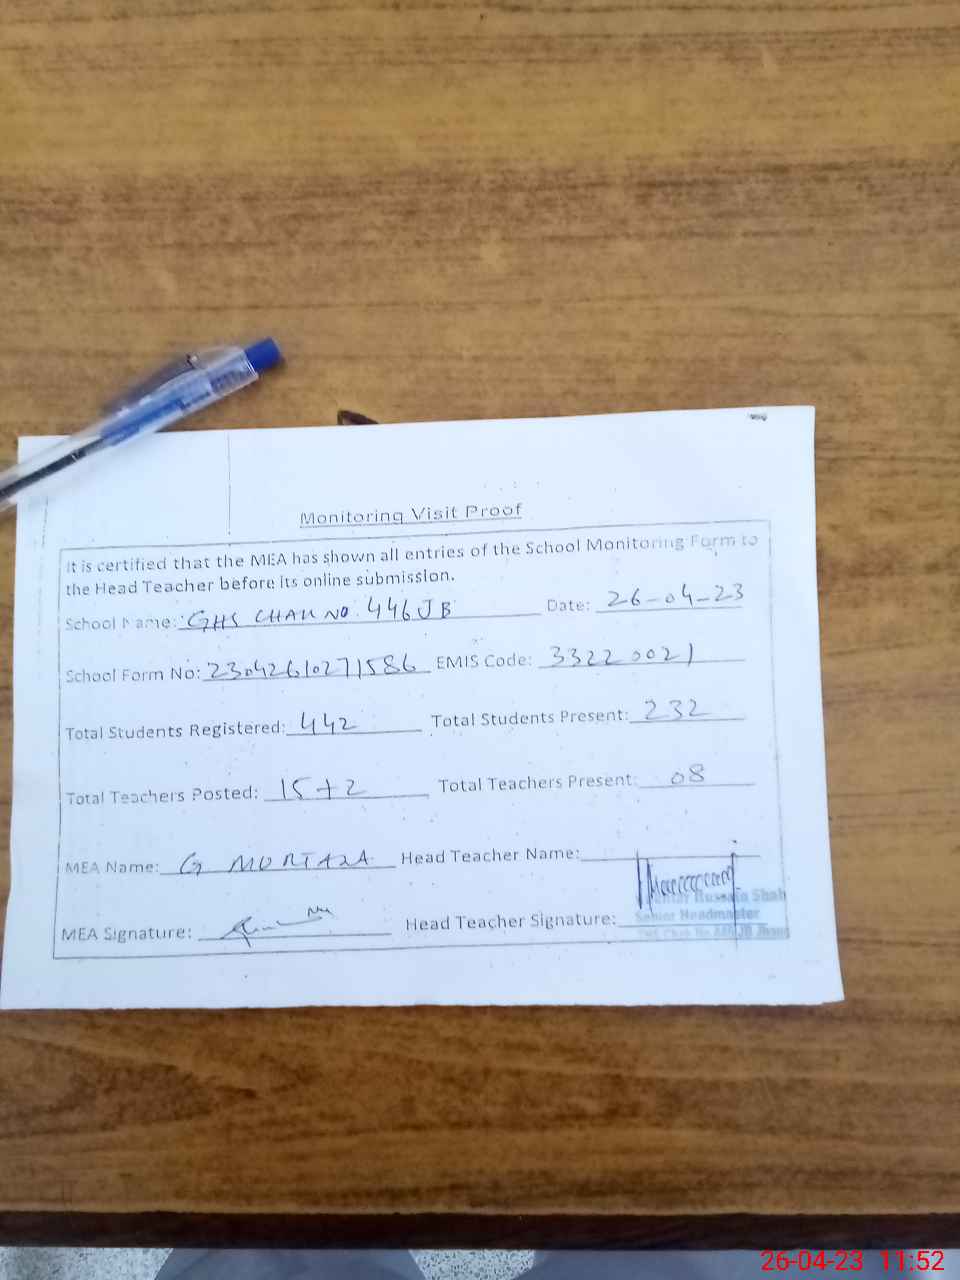 Monitoring Visit Proof
It is certified that the MEA has shown all entries of the School Monitoring Form to
the Head Teacher before its online submission.
School Name: GHS CHAK NO. 446 JB Date: 26-04-23
School Form No: 23042610271586 EMIS Code: 33220021
Total Students Registered: 442 Total Students Present: 232
Total Teachers Posted: 15+2 Total Teachers Present: 08
MEA Name: G MURTAZA Head Teacher Name:
Hussain Shah
MEA Signature: Head Teacher Signature:
Senior Headmaster
JB Jhang
26-04-23 11:52